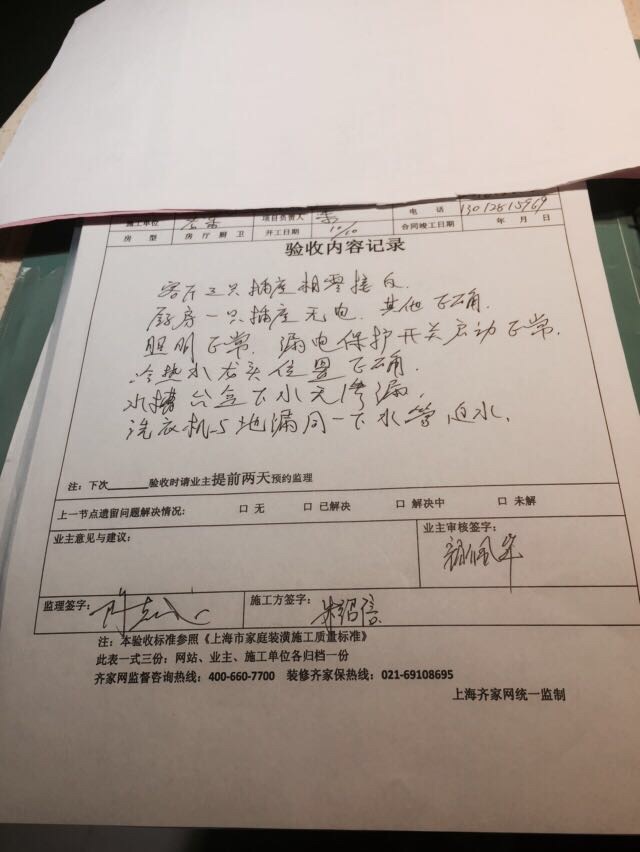 施工单位 项目负责人 电 话 13012815969
房 型 房 厅 厨 卫 开工日期 10/10 合同竣工日期 年 月 日
验收内容记录
客厅三只插座相零接反.
厨房一只插座无电. 其他正确.
照明正常. 漏电保护开关启动正常.
冷热水龙头位置正确.
水槽台盆下水无渗漏.
洗衣机与地漏同一下水管 迫水.
注：下次______验收时请业主提前两天预约监理
上一节点遗留问题解决情况： □ 无 □ 已解决 □ 解决中 □ 未解
业主意见与建议： 业主审核签字：
监理签字： 施工方签字： 朱绍信
注：本验收标准参照《上海市家庭装潢施工质量标准》
此表一式三份：网站、业主、施工单位各归档一份
齐家网监督咨询热线：400-660-7700 装修齐家保热线：021-69108695
上海齐家网统一监制